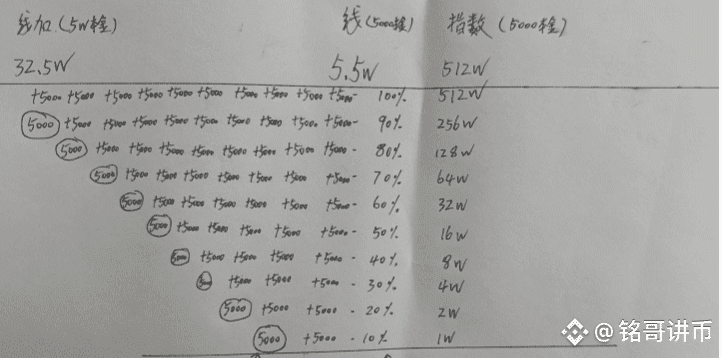 线加(5W本金) 线(5000本金) 指数(5000本金)
32.5W 5.5W 512W
+5000 +5000 +5000 +5000 +5000 +5000 +5000 +5000 +5000 +5000- 100% 512W
5000 +5000 +5000 +5000 +5000 +5000 +5000 +5000 +5000 +5000- 90% 256W
5000 +5000 +5000 +5000 +5000 +5000 +5000 +5000- 80% 128W
5000 +5000 +5000 +5000 +5000 +5000 +5000- 70% 64W
5000 +5000 +5000 +5000 +5000 +5000- 60% 32W
5000 +5000 +5000 +5000 +5000- 50% 16W
5000 +5000 +5000 +5000 +5000- 40% 8W
5000 +5000 +5000 +5000- 30% 4W
5000 +5000 +5000- 20% 2W
5000 +5000- 10% 1W
@铭哥讲币